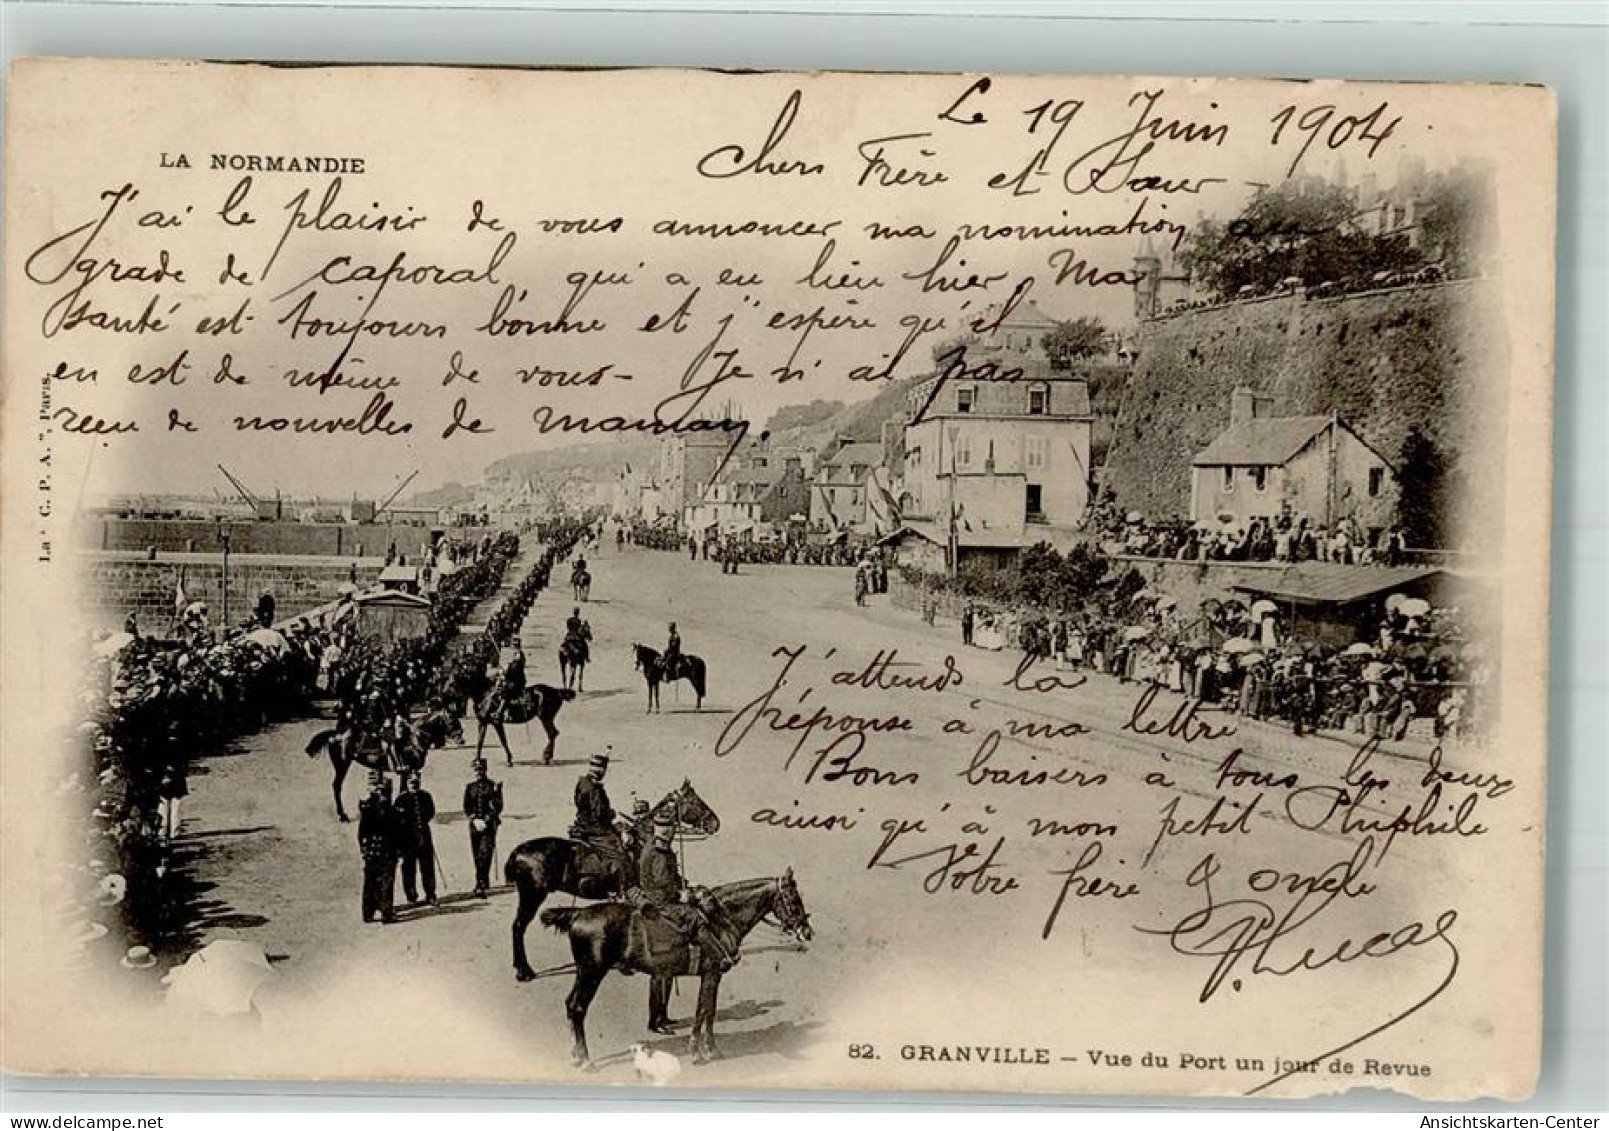 Le 19 Juin 1904
Chers Frère et Sœur
LA NORMANDIE
J'ai le plaisir de vous annoncer ma nomination au
grade de caporal qui a eu lieu hier. Ma
santé est toujours bonne et j'espère qu'il
en est de même de vous - Je n'ai pas
reçu de nouvelles de maman.
La "C. P. A.", Paris.
J'attends la
réponse à ma lettre
Bons baisers à tous les deux
ainsi qu'à mon petit Phiphile
Votre frère & oncle
P. Lucas
82. GRANVILLE — Vue du Port un jour de Revue
Ansichtskarten-Center